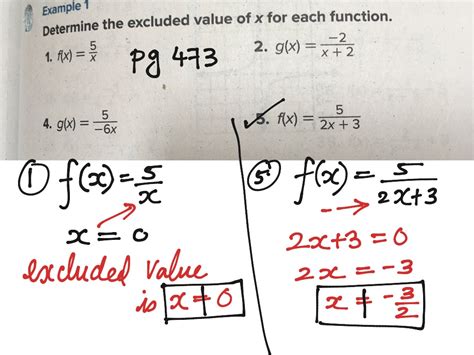 Example 1
Determine the excluded value of x for each function.
1. f(x) = 5/x
pg 473
2. g(x) = -2/(x + 2)
4. g(x) = 5/(-6x)
5. f(x) = 5/(2x + 3)
① f(x) = 5/x
x = 0
excluded value
is x ≠ 0
⑤ f(x) = 5/(2x+3)
2x+3 = 0
2x = -3
x ≠ -3/2